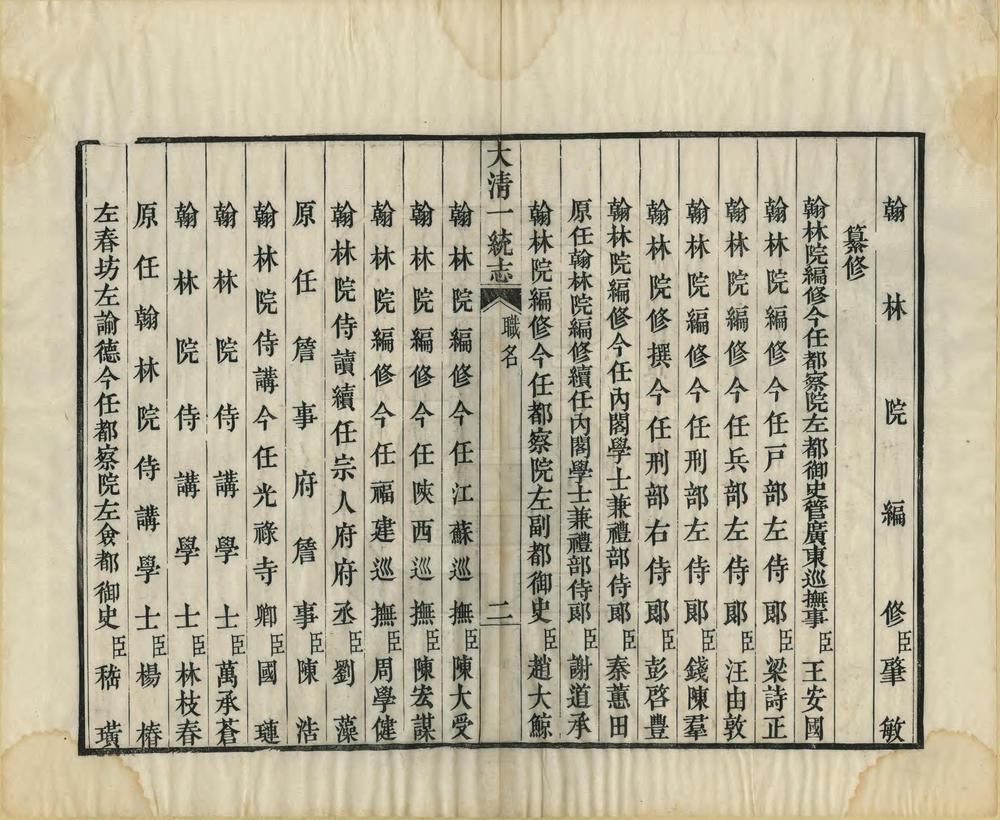 翰林院編修臣肇敏
纂修
翰林院編修今任都察院左都御史管廣東巡撫事臣王安國
翰林院編修今任戶部左侍郎臣梁詩正
翰林院編修今任兵部左侍郎臣汪由敦
翰林院編修今任刑部左侍郎臣錢陳羣
翰林院修撰今任刑部右侍郎臣彭啓豐
翰林院編修今任內閣學士兼禮部侍郎臣秦蕙田
原任翰林院編修續任內閣學士兼禮部侍郎臣謝道承
翰林院編修今任都察院左副都御史臣趙大鯨
大清一統志 職名 二
翰林院編修今任江蘇巡撫臣陳大受
翰林院編修今任陝西巡撫臣陳宏謀
翰林院編修今任福建巡撫臣周學健
翰林院侍讀續任宗人府府丞臣劉藻
原任詹事府詹事臣陳浩
翰林院侍講今任光祿寺卿臣國璉
翰林院侍講學士臣萬承蒼
翰林院侍講學士臣林枝春
原任翰林院侍講學士臣楊椿
左春坊左諭德今任都察院左僉都御史臣嵇璜